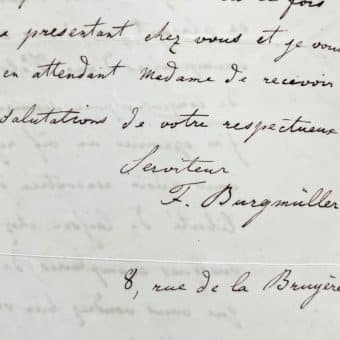 fois
présentant chez vous et je vous
en attendant Madame de recevoir
salutations de votre respectueux
Serviteur
F. Burgmüller
8, rue de la Bruyère